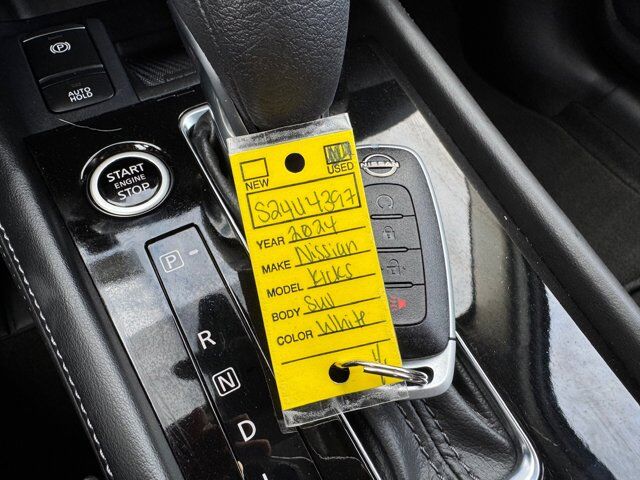 P
AUTO
HOLD
START
ENGINE
STOP
NEW
USED
S24U4397
YEAR 2024
MAKE Nissian
MODEL Kicks
BODY SUV
COLOR White
NISSAN
P
R
N
D